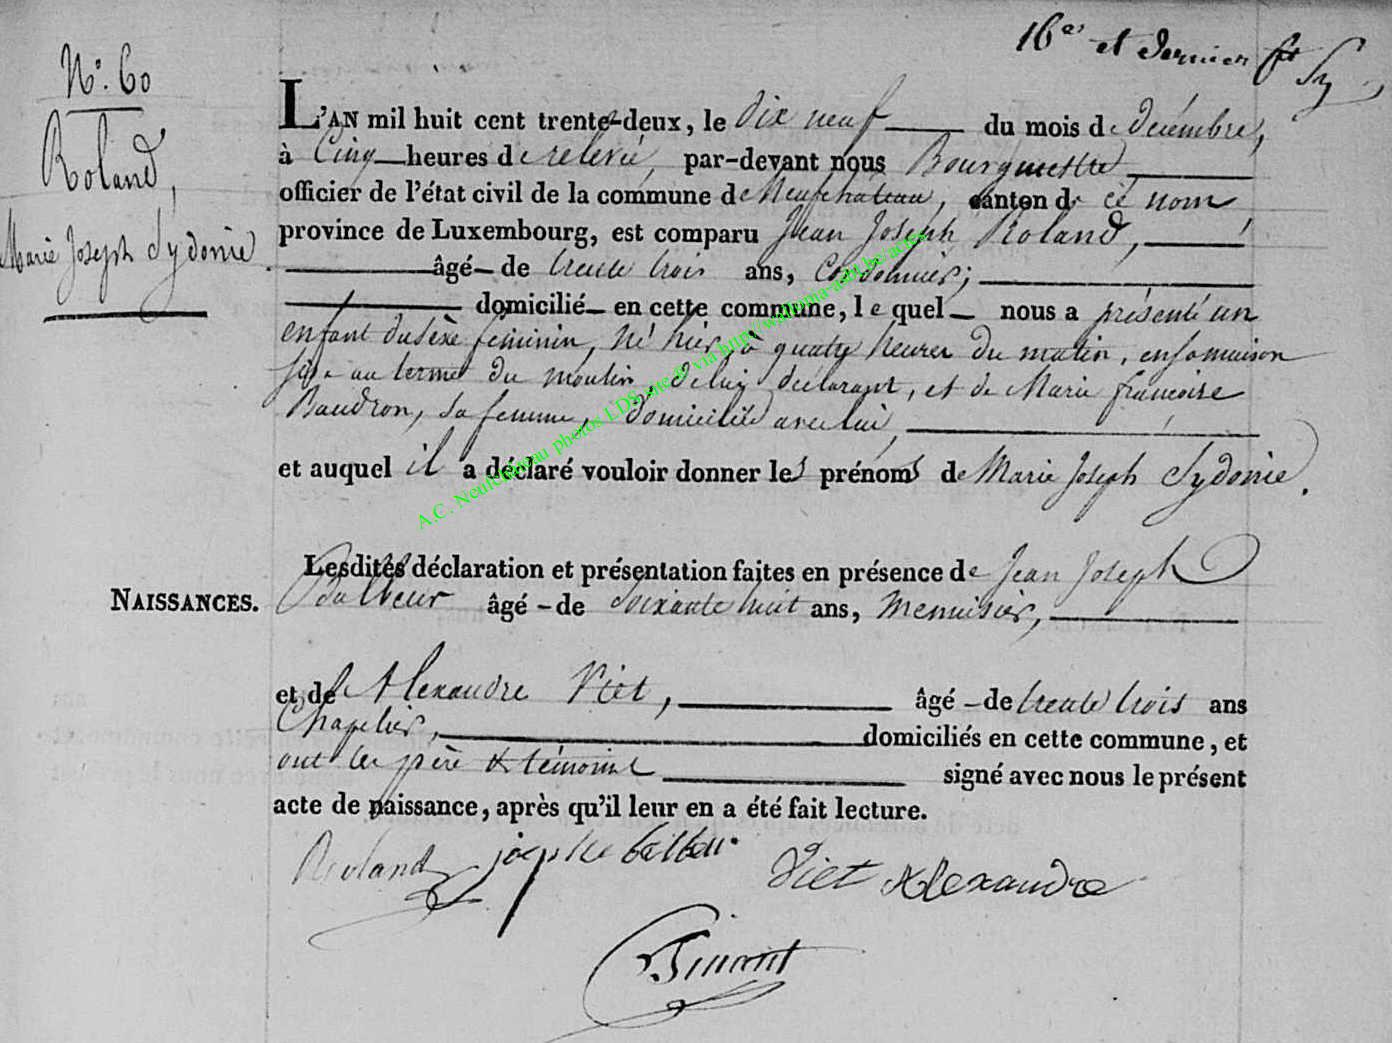 16er et dernier ft
N° 60
Roland,
Marie Joseph Sydonie
L'AN mil huit cent trente-deux, le dix neuf du mois de décembre,
à Cinq heures de relevée, par-devant nous Bourgmestre
officier de l'état civil de la commune de Neufchateau, canton de ce nom
province de Luxembourg, est comparu Jean Joseph Roland,
âgé de trente trois ans, Cordonnier;
domicilié en cette commune, lequel nous a présenté un
enfant du sèxe féminin, né hier, à quatre heures du matin, en sa maison
sise au terme du moulin, de lui déclarant, et de Marie françoise
Baudron, sa femme, domiciliée avec lui,
et auquel il a déclaré vouloir donner les prénoms de Marie Joseph Sydonie.
NAISSANCES.
Lesdites déclaration et présentation faites en présence de Jean Joseph
Balbeur âgé de soixante huit ans, Menuisier,
et de Alexandre Viet, âgé de trente trois ans
Chapelier, domiciliés en cette commune, et
ont les père & témoins signé avec nous le présent
acte de naissance, après qu'il leur en a été fait lecture.
Roland
Viet Alexandre
A.C. Neufchâteau photos LDS site & via http://wallonia-asbl.be/actes